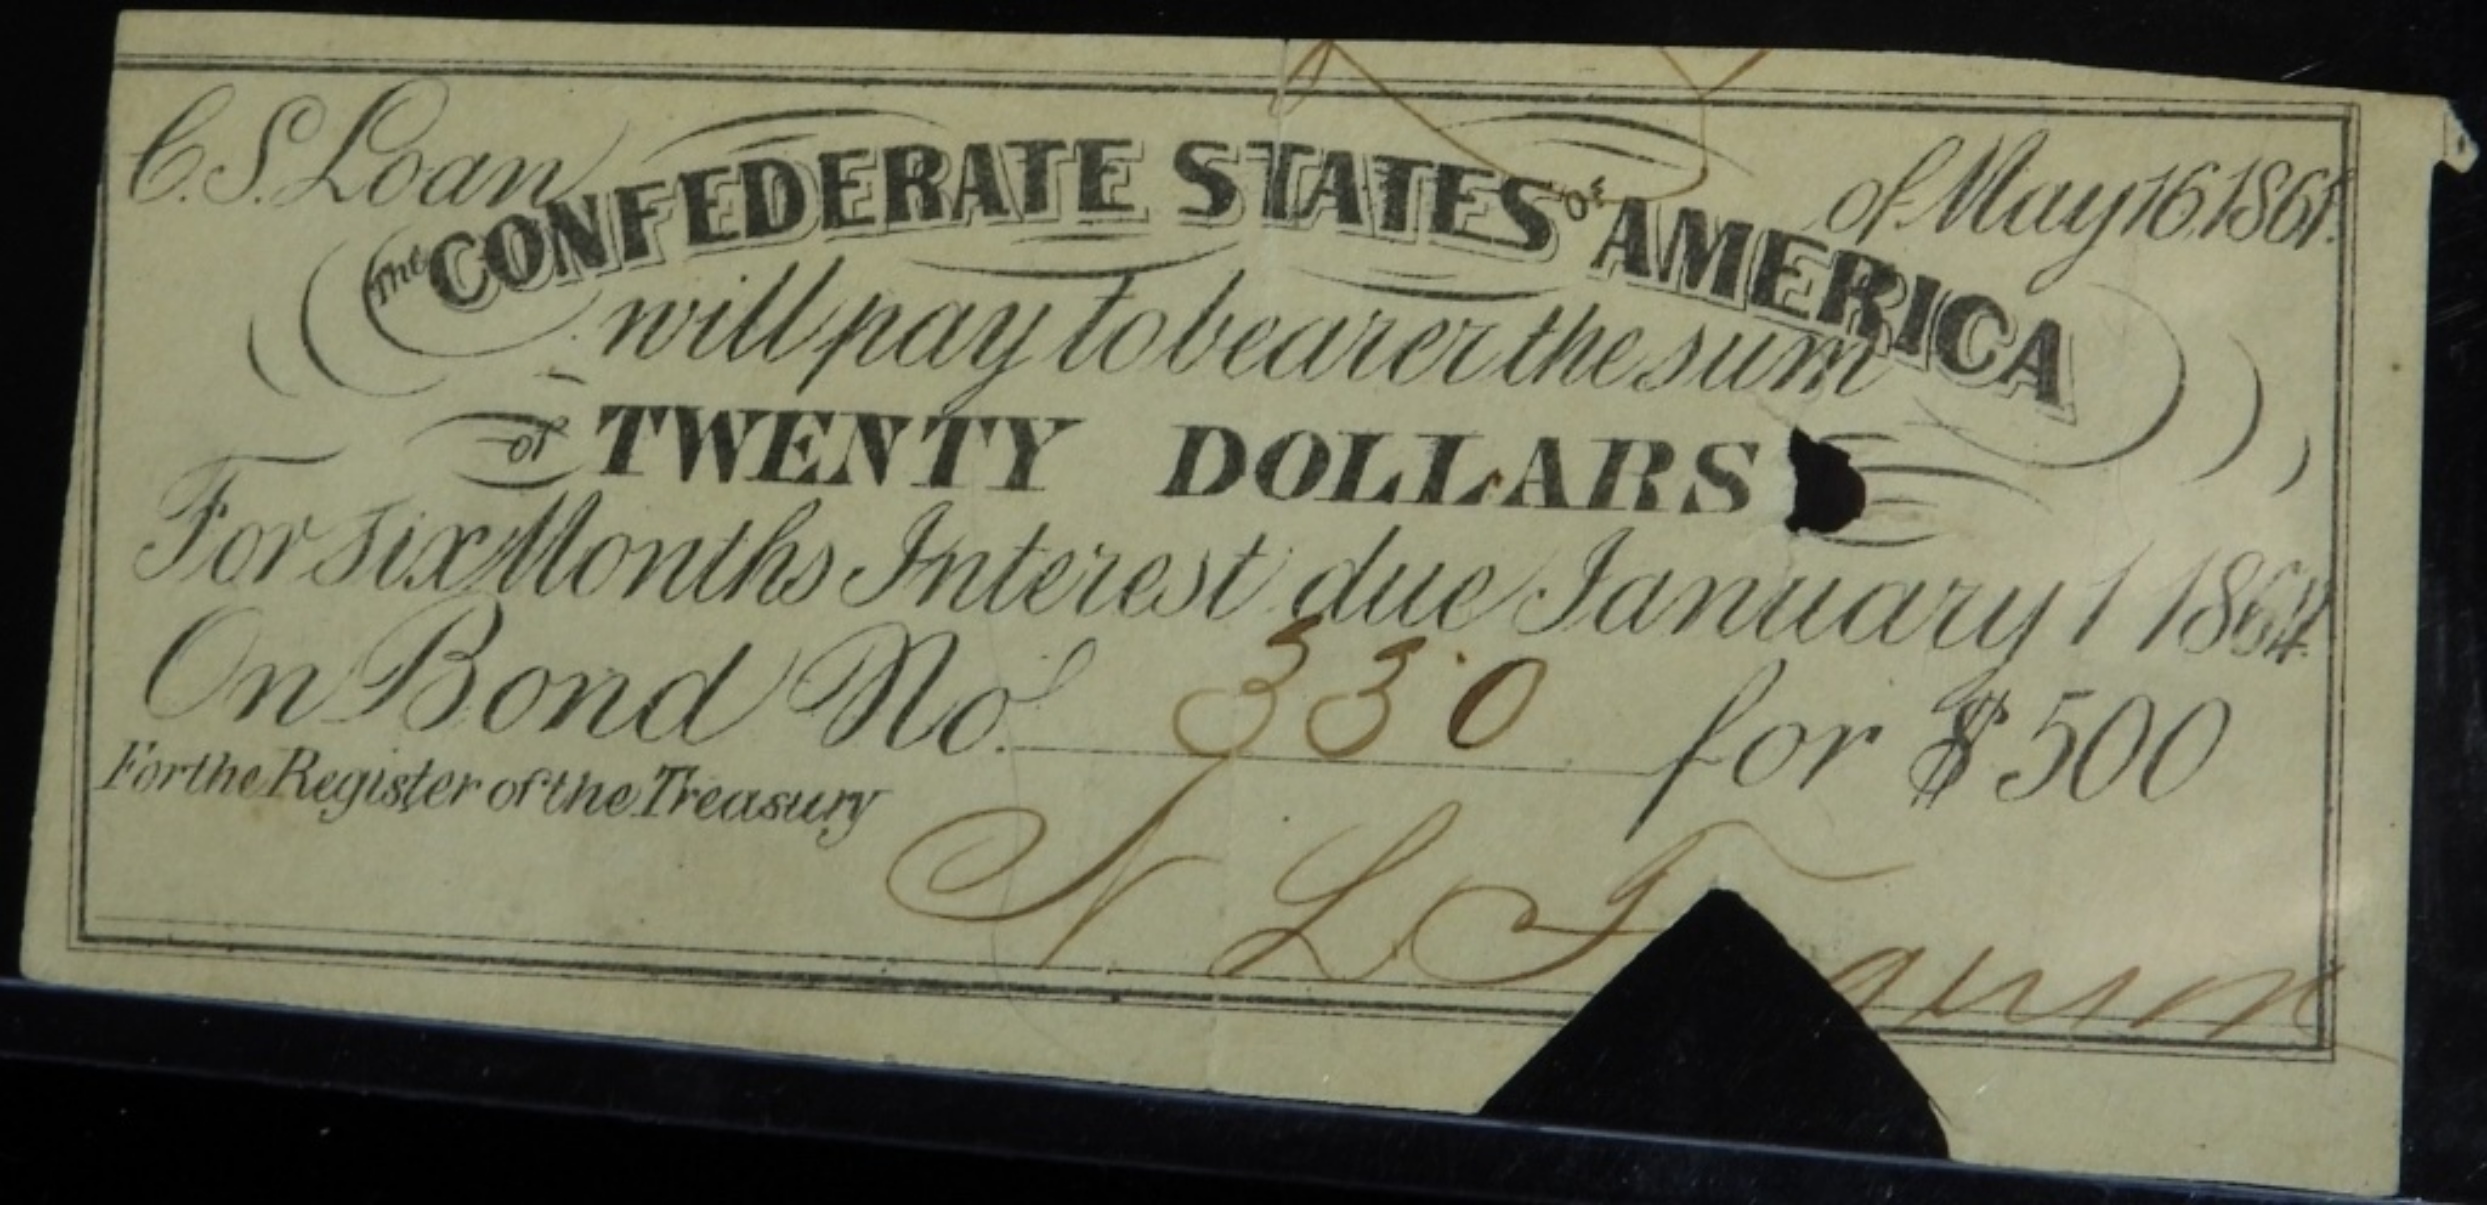 C.S. Loan of May 16, 1861.
The CONFEDERATE STATES OF AMERICA
will pay to bearer the sum
of TWENTY DOLLARS
For six Months Interest due January 1 1864.
On Bond No. 330 for $500
For the Register of the Treasury
N L